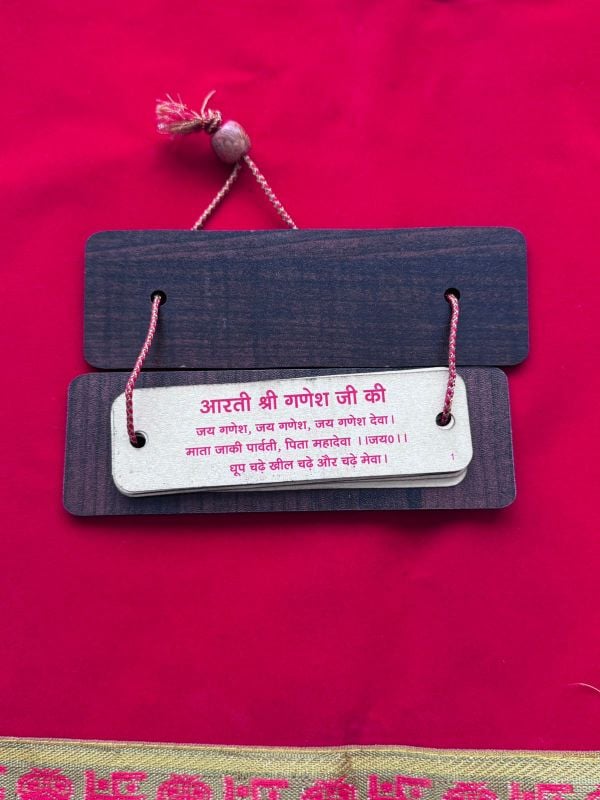 आरती श्री गणेश जी की
जय गणेश, जय गणेश, जय गणेश देवा।
माता जाकी पार्वती, पिता महादेवा ।।जय०।।
धूप चढ़े खील चढ़े और चढ़े मेवा।
1